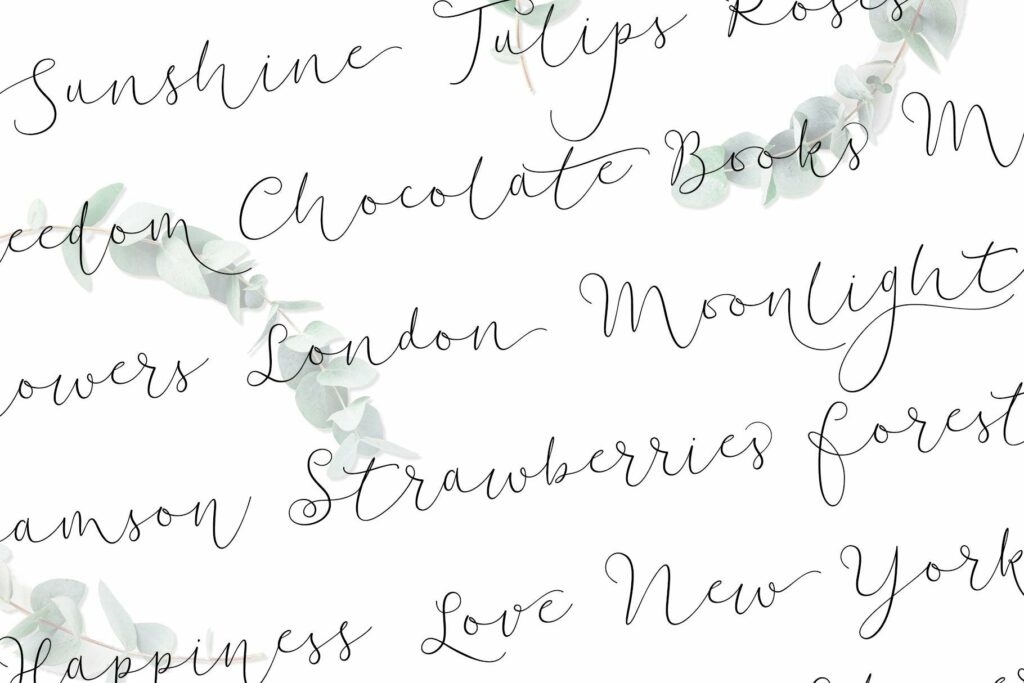 Sunshine Tulips Roses
eedom Chocolate Books M
owers London Moonlight
amson Strawberries Forest
Happiness Love New York